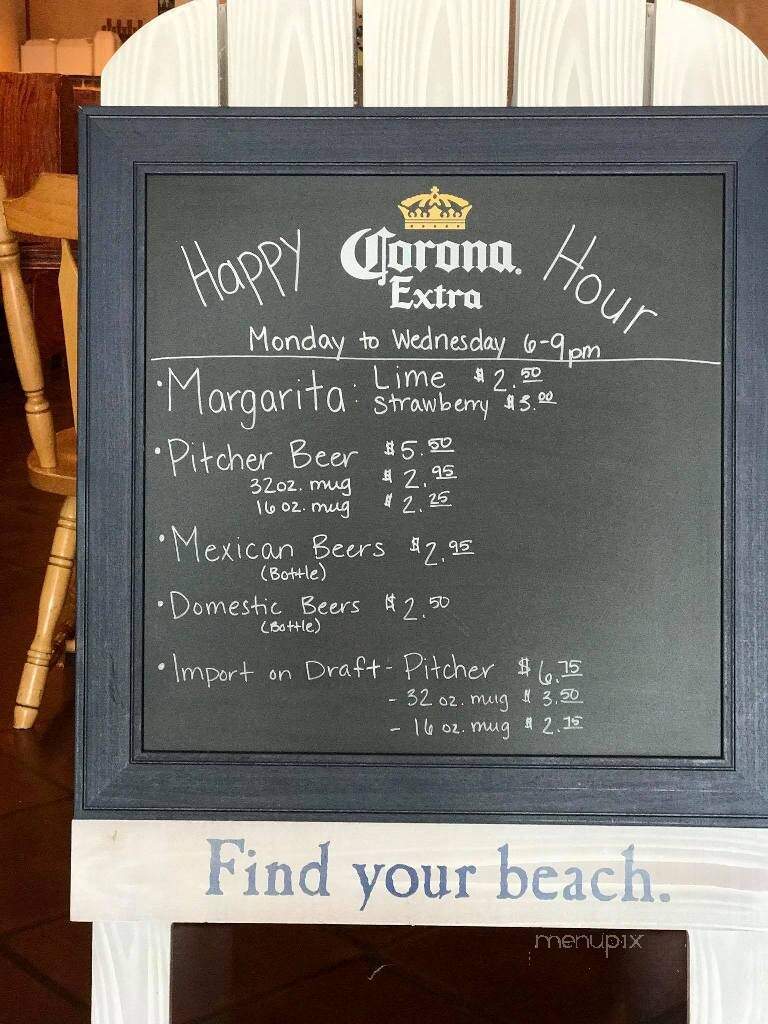 Happy Corona. Hour
Extra
Monday to Wednesday 6-9pm
• Margarita: Lime $2.50
Strawberry $3.00
• Pitcher Beer $5.50
32oz. mug $2.95
16 oz. mug $2.25
• Mexican Beers $2.95
(Bottle)
• Domestic Beers $2.50
(Bottle)
• Import on Draft - Pitcher $6.75
- 32 oz. mug $3.50
- 16 oz. mug $2.75
Find your beach.
menupix